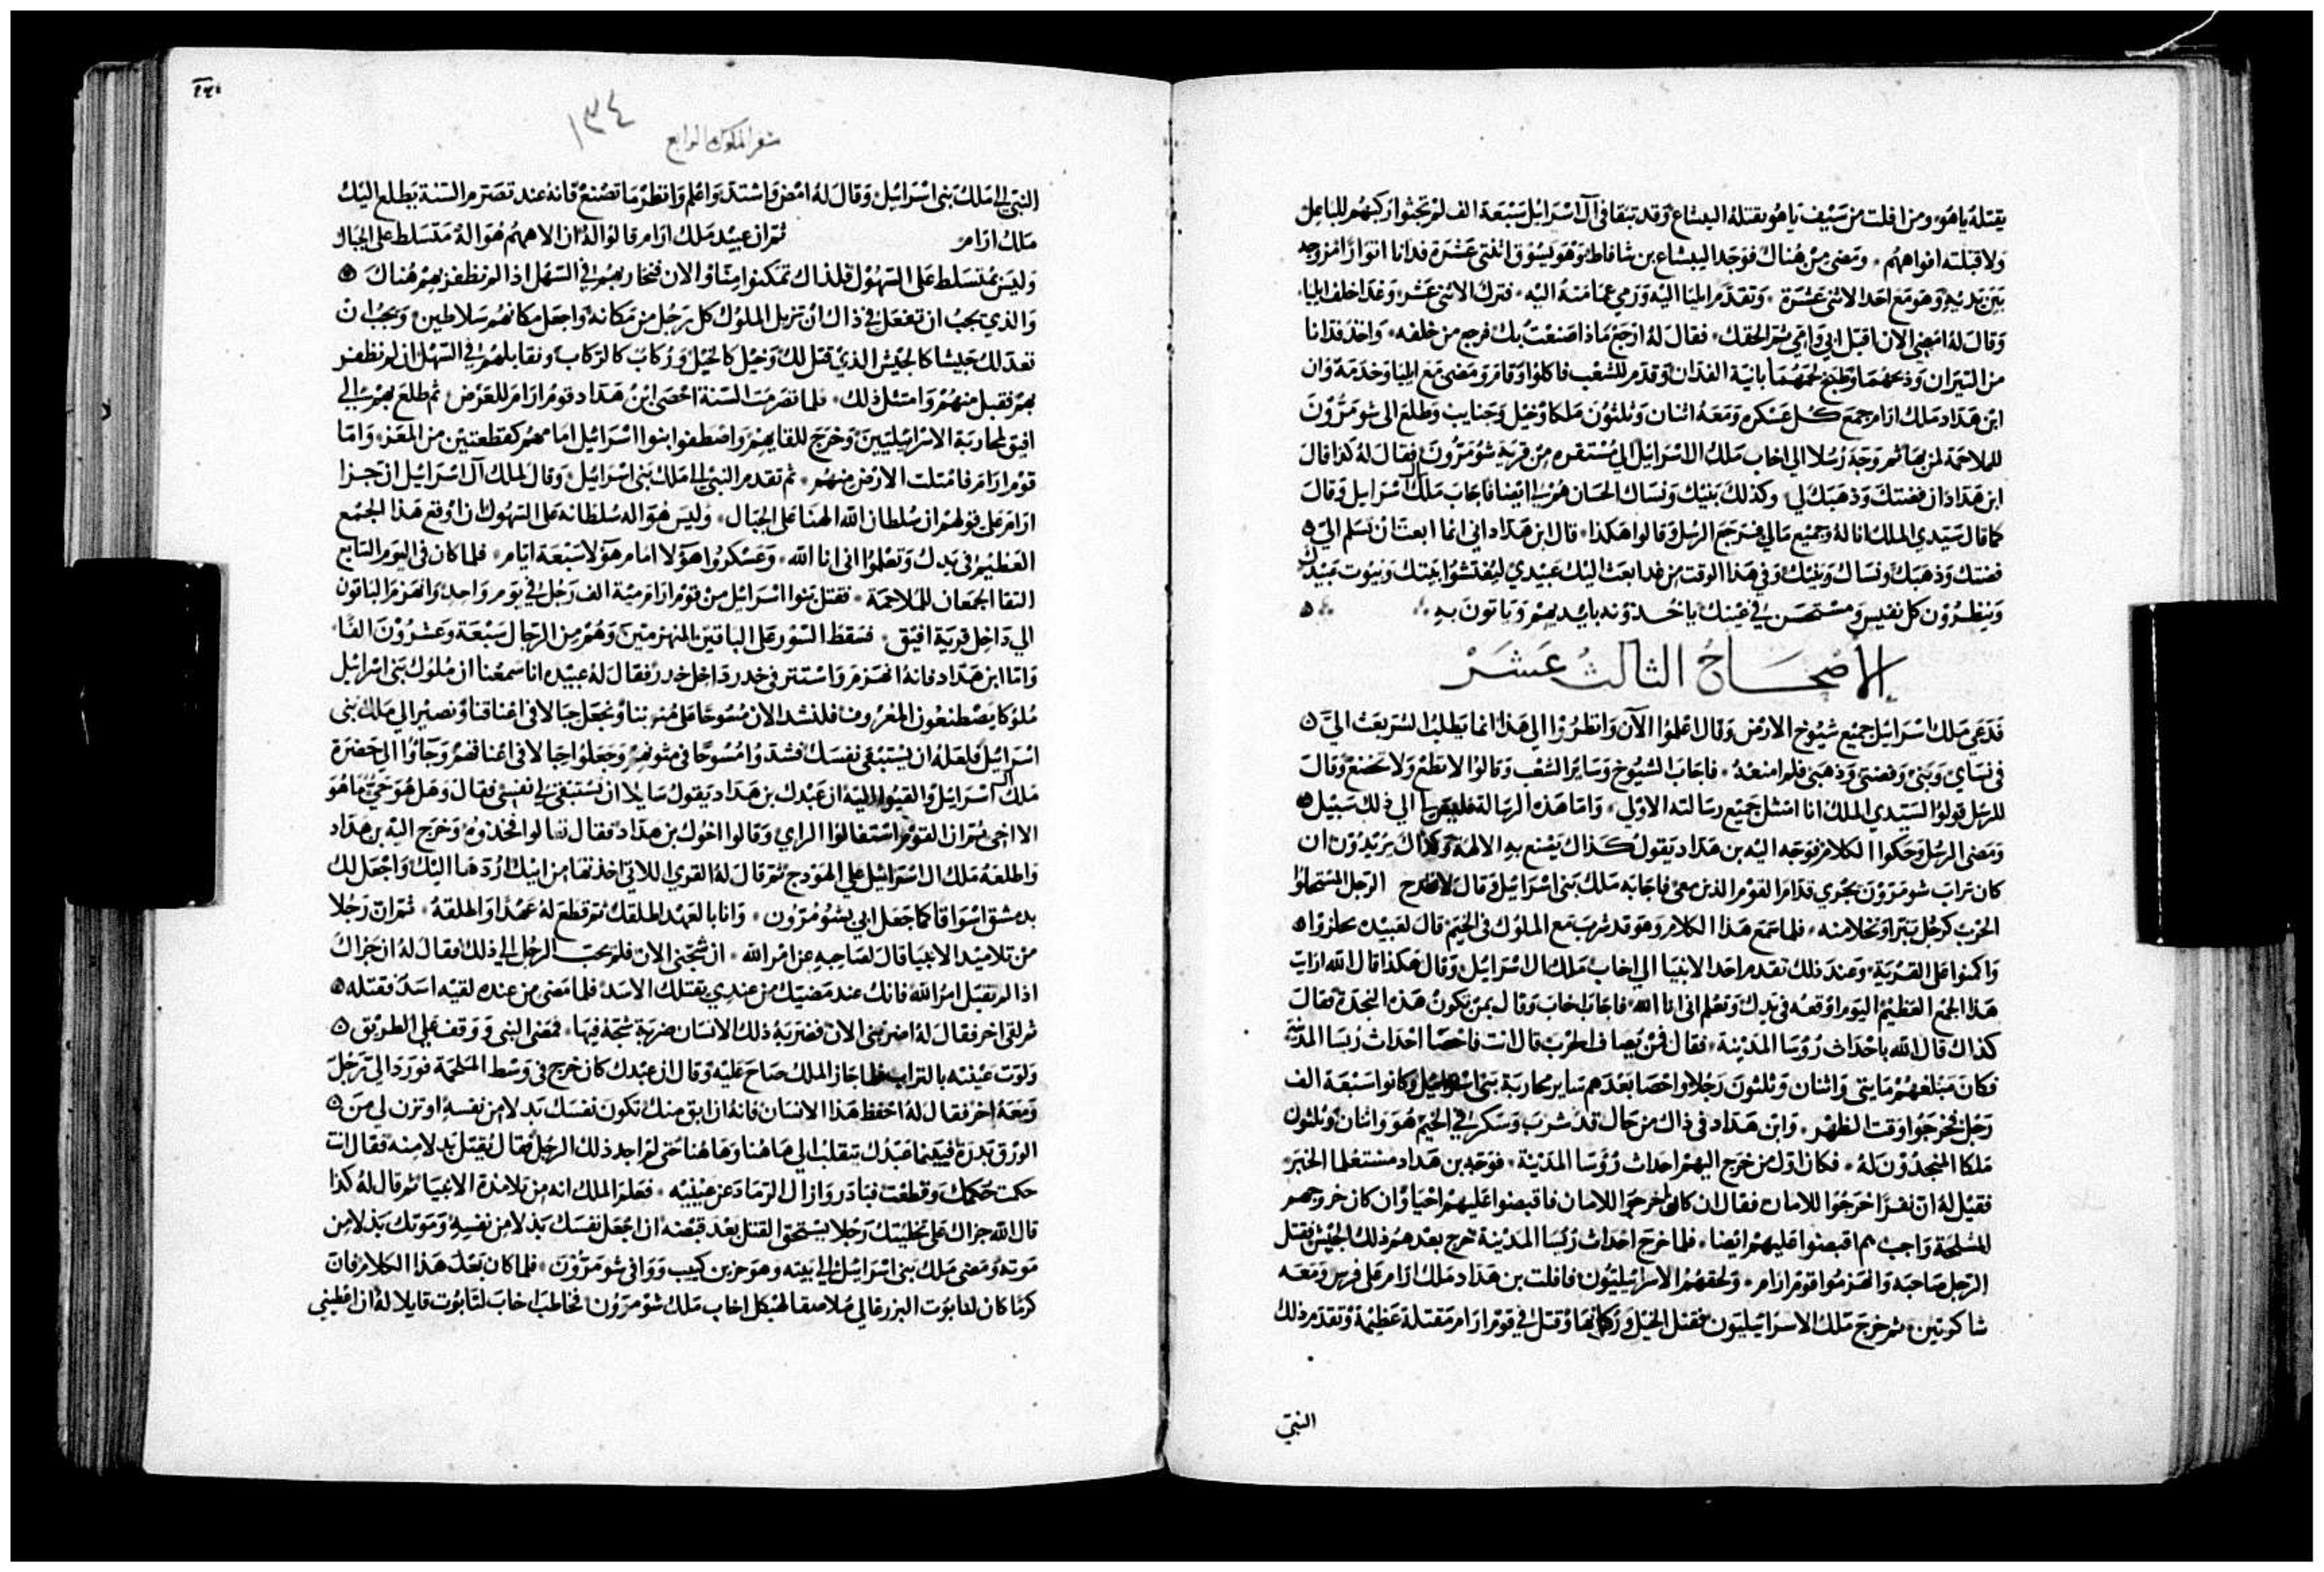 يقتله ياهو ومن افلت من سيف ياهو يقتله اليشاع وقد تبقا في آل اسرائيل سبعة الف لم يجثوا ركبهم للباعل
ولا قبلته افواههم ومضى من هناك فوجد اليشاع بن شافاط وهو يسوق اثنتي عشرة فدانا اثوارا مزوجه
بين يديه وهو مع احد الاثني عشرة وتقدم ايليا اليه ورمي عمامته اليه فترك الاثني عشر وغدا خلف ايليا
وقال له امضي الان اقبل ابي وامي ثم الحقك فقال له ارجع ماذا صنعت بك فرجع من خلفه واخذ فدانا
من الثيران وذبحهما وطبخ لحمهما بانية الفدان وقدم للشعب فاكلوا وقام ومضى مع ايليا وخدمه وان
ابن هداد ملك ارام جمع كل عسكره ومعه اثنان وثلثون ملكا وخيل وجنايب وطلع الى شومرون
للملاحمة لمن بها ثم وجه رسلا الي اخاب ملك ال اسرائيل الي مستقره من قرية شومرون فقال له كذا قال
ابن هداد ان فضتك وذهبك لي وكذلك بنيك ونساك الحسان هم لي ايضا فاجاب ملك ال اسرايل وقال
كما قال سيدي الملك انا له وجميع مالي فرجع الرسل وقالوا هكذا قال ابن هداد اني انما ابعث ان تسلم الي
فضتك وذهبك ونساك وبنيك وفي هذا الوقت من غد ابعث اليك عبيدي ليفتشوا بيتك وبيوت عبيدك
وينظرون كل نفيس ومستحسن في عينك ياخذونه بايديهم وياتون به
الاصحاح الثالث عشر
فدعي ملك اسرائيل جميع شيوخ الارض وقال اعلموا الآن وانظروا الي هذا انما يطلب الشر بعث الي
في نساي وبني وفضتي وذهبي فلم امنعه فاجاب الشيوخ وساير الشعب وقالوا لا تطع ولا تصنع وقال
للرسل قولوا لسيدي الملك انا امتثل جميع رسالته الاولي واما هذه الرسالة فليس الي ذلك سبيل
ومضى الرسل وحكوا الكلام فوجه اليه بن هداد يقول كذاك يصنع به الالهة وكذاك يزيدون ان
كان تراب شومرون يجزي قدام القوم الذين معي فاجابه ملك بني اسرائيل وقال لا يمدح الرجل المتحلوا
الحرب كرجل تبرا وتخلا منه فلما سمع هذا الكلام وهو قد شرب مع الملوك في الخيم قال لعبيده
واكمنوا على القرية وعند ذلك تقدم احد الانبيا الي اخاب ملك ال اسرائيل وقال هكذا قال الله ارايت
هذا الجمع العظيم اليوم اوقعه في يدك وتعلم اني انا الله فاجاب اخاب وقال بمن يكون هذه النجدة فقال
كذاك قال الله باحداث روسا المدينة فقال فمن يصاف الحرب قال انت فاحصا احداث روسا المدينة
فكان مبلغهم مايتي واثنان وثلثون رجلا واحصا بعدهم ساير محاربة بني اسرائيل وكانوا سبعة الف
رجل فخرجوا وقت الظهر وابن هداد في ذاك من حال قد شرب وسكر في الخيم هو واثنان وثلثون
ملكا المنجدون له فكان اول من خرج اليهم احداث روسا المدينة فوجه بن هداد مستعلما الخبر
فقيل له ان نفرا خرجوا للامان فقال ان كانوا خرجوا للامان فاقبضوا عليهم احيا وان كان خروجهم
للملحمة واجب بهم اقبضوا عليهم ايضا فلما خرج احداث روسا المدينة خرج بعدهم ذلك الجيش فقتل
الرجل صاحبه وانهزموا قوم ارام ولحقهم الاسرائيليون فافلت بن هداد ملك ارام على فرس ومعه
شاكوتين ثم خرج ملك الاسرائيليون فقتل الخيل وركابها وقتل في قوم ارام مقتلة عظيمة وتقدم ذلك
النبي
سفر الملوك الرابع ١٣٤
النبي الي ملك بني اسرائيل وقال له امض واشتد واعلم وانظر ما تصنع فانه عند تصرم السنة يطلع اليك
ملك ارام ثم ان عبيد ملك ارام قالوا له ان الاههم هو اله متسلط على الجبال
وليس متسلط على السهول فلذاك تمكنوا منا والان فنحاربهم في السهل اذا لم نظفر بهم هناك
والذي يجب ان تفعل في ذاك ان تزيل الملوك كل رجل من مكانه واجعل مكانهم سلاطين ويجب ان
تعد لك جيشا كالجيش الذي قتل لك وخيل كالخيل وركاب كالركاب ونقابلهم في السهل ان لم نظفر
بهم فقبل منهم وامتثل ذلك فلما تصرمت السنة احصى ابن هداد قوم ارام للعرض ثم طلع بهم الي
افيق لمحاربة الاسرائيليين وخرج للقايهم واصطفوا بنوا اسرائيل امامهم كقطعتين من المعز واما
قوم ارام فامتلت الارض منهم ثم تقدم النبي الي ملك بني اسرائيل وقال لملك آل اسرائيل ان جزا
ارام على قولهم ان سلطان الله الهنا على الجبال وليس هو اله سلطانه على السهول ان اوقع هذا الجمع
العظيم في يدك وتعلموا اني انا الله وعسكروا هولا امام هولا سبعة ايام فلما كان في اليوم السابع
التقا الجمعان للملاحمة فقتل بنوا اسرائيل من قوم ارام مية الف رجل في يوم واحد وانهزم الباقون
الي داخل قرية افيق فسقط السور على الباقين المنهزمين وهم من الرجال سبعة وعشرون الفا
واما ابن هداد فانه انهزم واستتر في خدر داخل خدر فقال له عبيده انا سمعنا ان ملوك بني اسرائيل
ملوكا يصطنعون المعروف فلنشد الان مسوحا على متوننا ونجعل حبالا في اعناقنا ونصير الي ملك بني
اسرائيل فلعله ان يستبقي نفسك فشدوا مسوحا في متونهم وجعلوا حبالا في اعناقهم وجاوا الي حضرة
ملك ال اسرائيل والقيوا اليه ان عبدك بن هداد يقول سايلا ان تستبقي لي نفسي فقال وهل هو حي ما هو
الا اخي ثم ان القوم استفالوا الراي وقالوا اخوك بن هداد فقال تعالوا فخذوه وخرج اليه بن هداد
واطلعه ملك ال اسرائيل علي الهودج ثم قال له القري اللاتي اخذتها من ابيك اردها اليك واجعل لك
بدمشق اسواقا كما جعل ابي بشومرون وانا بالعهد اطلقك ثم قطع له عهدا واطلقه ثم ان رجلا
من تلاميذ الانبيا قال لصاحبه عن امر الله ان شجني الان فلم يجب الرجل الي ذلك فقال له ان جزاك
اذا لم تقبل امر الله فانك عند مضيتك من عندي يقتلك الاسد فلما مضى من عنده لقيه اسد فقتله
ثم لقي اخر فقال له اضربني الان فضربه ذلك الانسان ضربة شجه فيها فمضى النبي ووقف علي الطريق
ولوت عينيه بالتراب فلما جاز الملك صاح عليه وقال ان عبدك كان خرج في وسط الملحمة فورد الي رجل
ومعه اخر فقال له احفظ هذا الانسان فانه ان ابق منك تكون نفسك بدلا من نفسه او تزن لي من
الورق بدرة فبينما عبدك يتقلب الي هاهنا وهاهنا حتى لم اجد ذلك الرجل فقال يقتل بدلا منه فقال انت
حكمت حكمك وقطعت فبادر وازال الرماد عن عينيه فعلم الملك انه من تلامذة الانبيا ثم قال له كذا
قال الله جزاك على تخليتك رجلا يستحق القتل بعد قبضه ان اجعل نفسك بدلا من نفسه وموتك بدلا من
موته ومضى ملك بني اسرائيل الي بيته وهو حزين كييب ووافى شومرون فلما كان بعد هذا الكلام فان
كرما كان لنابوت اليزرعالي ملاصقا لهيكل اخاب ملك شومرون فخاطب اخاب لنابوت قايلا له ان اعطيني